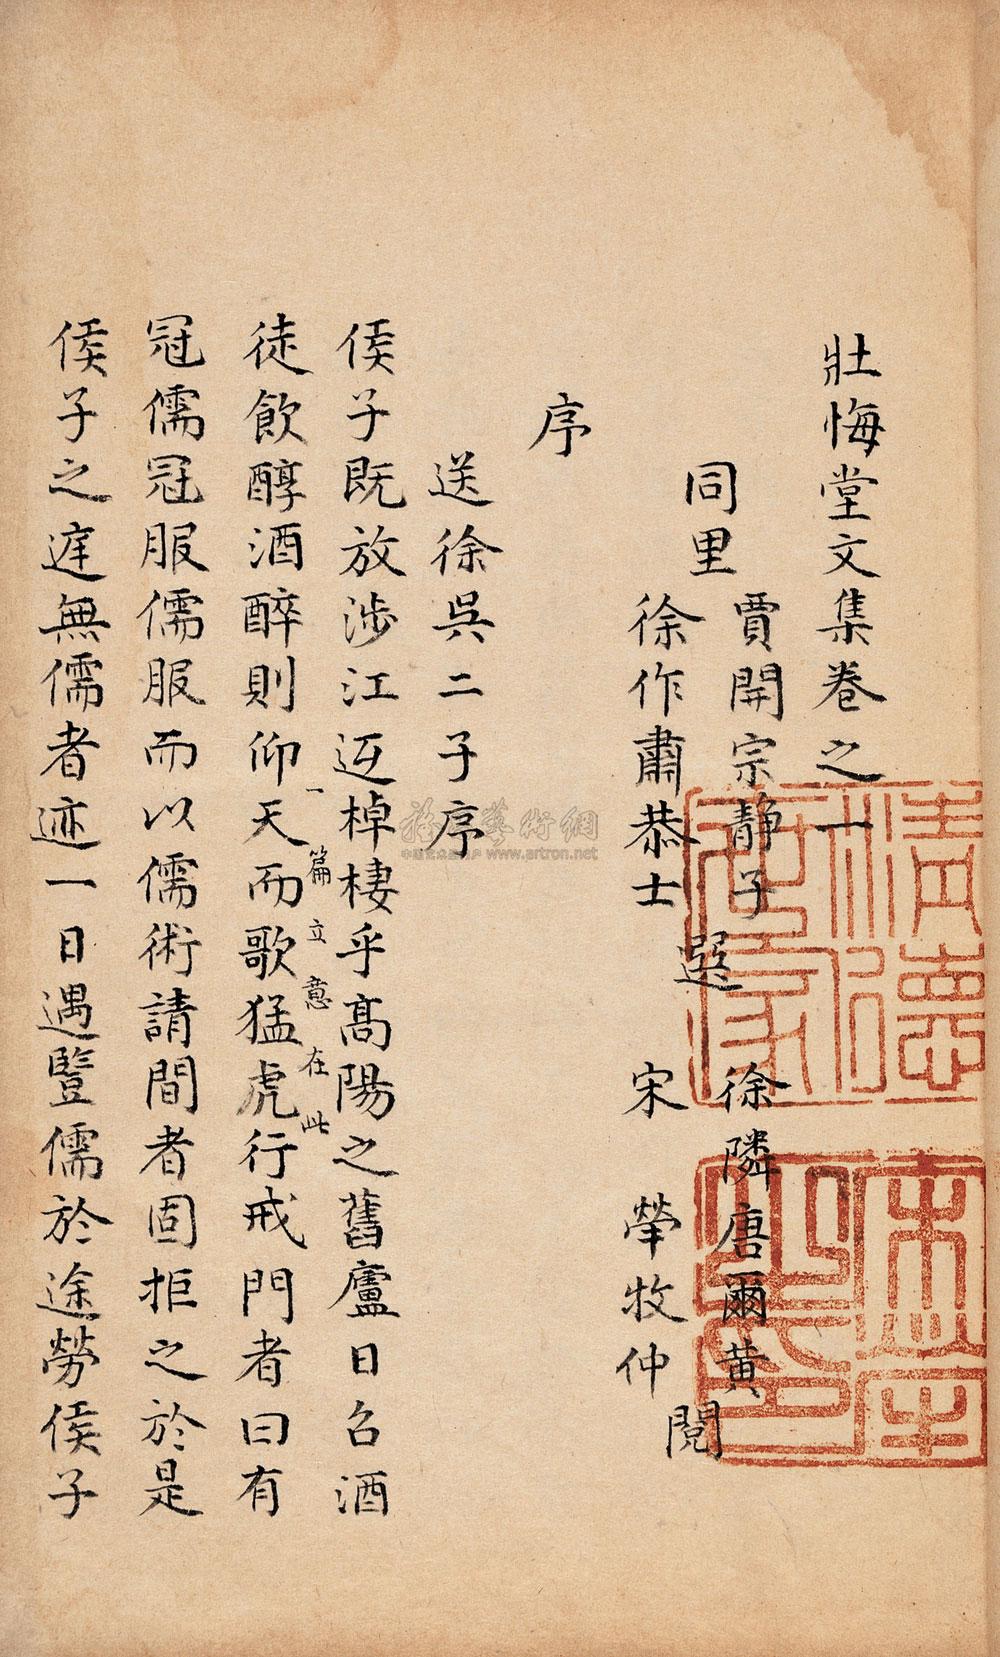 壯悔堂文集卷之一
同里
賈開宗静子
徐作肅恭士
選
徐隣唐爾黄
宋犖牧仲
閱
序
送徐吳二子序
侯子既放涉江返棹棲乎高陽之舊廬日召酒
徒飲醇酒醉則仰天而歌猛虎行戒門者曰有
一篇立意在此
冠儒冠服儒服而以儒術請間者固拒之於是
侯子之庭無儒者迹一日遇豎儒於途勞侯子
清德
www.artron.net